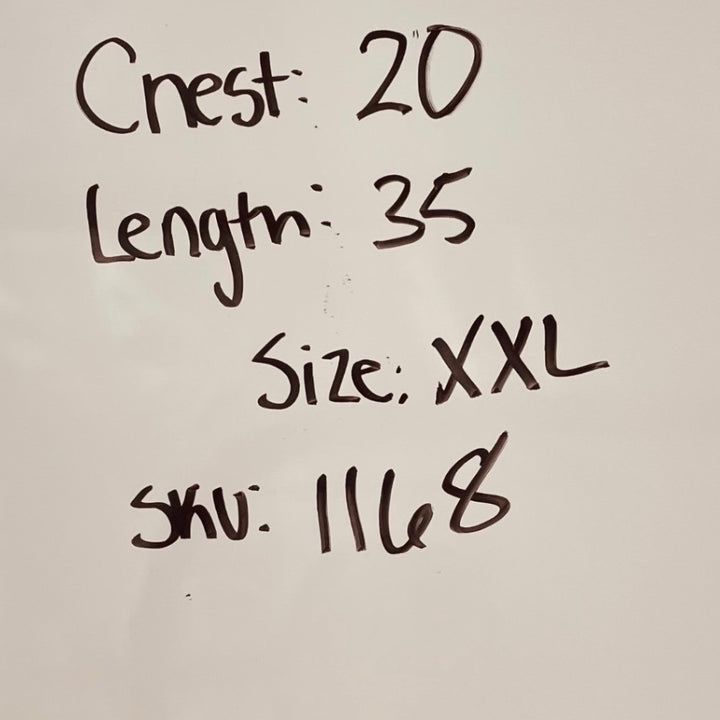 Chest: 20
Length: 35
Size: XXL
SKU: 1168